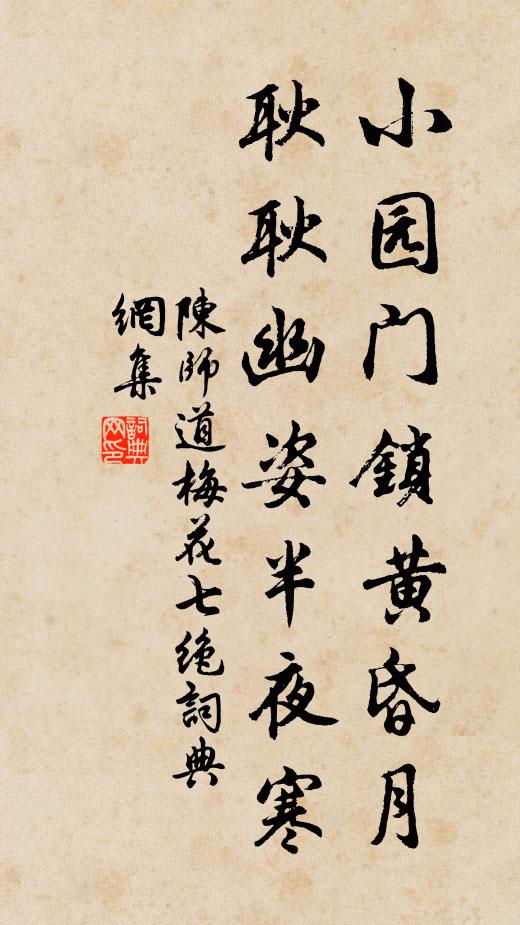 小园门鎖黄昏月
耿耿幽姿半夜寒
陳師道梅花七绝詞典
網集
詞典
网印